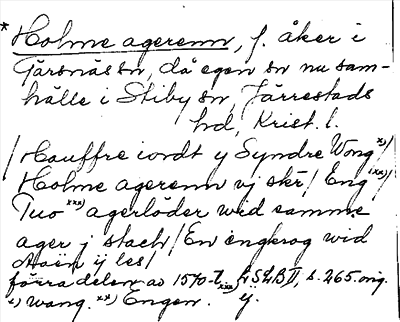 * Holme ageren, f. åker i
Gärsnäs sn, då egen sn nu sam-
hälle i Stiby sn, Järrestads
hd, Krist. l.
/ Hauffre iordt y Syndre Wong x) /
Holme ageren vj skr / Eng xx) /
Tuo xxx) agerlöder wid samme
ager j stach / En engkrog wid
Aaen ij les /
förra delen av 1570-t. LSLB II, s. 265. orig.
x) wang. xx) Engen. xxx) ij.